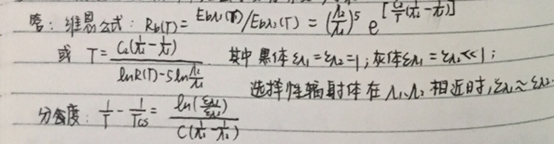 答: 维恩公式: Rb(T) = Ebλ₁(T)/Ebλ₂(T) = (λ₂/λ₁)⁵ e^[C₂/T(1/λ₂-1/λ₁)]
或 T = C₂(1/λ₂-1/λ₁)/(lnR(T)-5lnλ₂/λ₁) 其中黑体ελ₁=ελ₂=1; 灰体ελ₁=ελ₂≪1;
选择性辐射体在λ₁、λ₂相近时, ελ₁~ελ₂.
1/T - 1/Tcs = ln(ελ₁/ελ₂)/C(1/λ₁-1/λ₂)